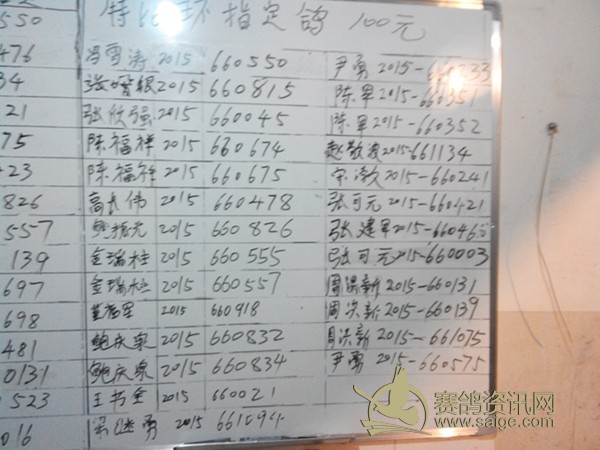 特比环指定鸽 100元
550
476 冯雪涛 2015 660550 尹勇 2015-660533
34 张增银 2015 660815 陈军 2015-660351
21 张欣强 2015 660045 陈军 2015-660352
75 陈福祥 2015 660674 赵敬波 2015-661134
23 陈福祥 2015 660675 宋激 2015-660241
826 高长伟 2015 660478 张可元 2015-660421
557 鲍振元 2015 660826 张建军 2015-66046
139 金瑞柱 2015 660555 张可元 2015-660003
697 金瑞柱 2015 660557 周洪新 2015-660131
698 2015 660918 周洪新 2015-660139
481 鲍庆泉 2015 660832 周洪新 2015-661075
0131 鲍庆泉 2015 660834 尹勇 2015-660575
523 王书奎 2015 660021
016 梁继勇 2015 661094
赛鸽资讯网
www.saige.com